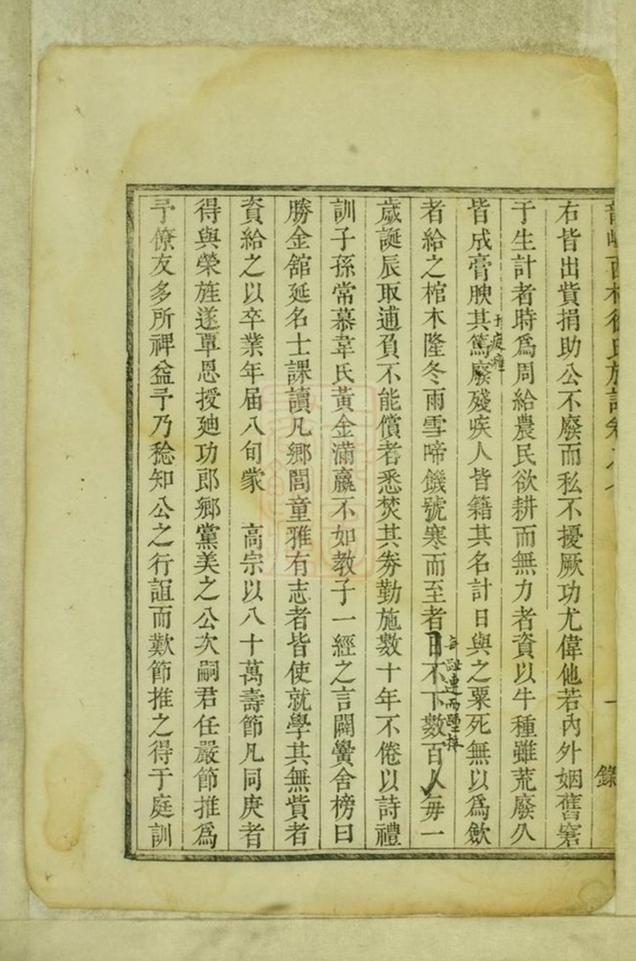 右皆出貲捐助公不廢而私不擾厥功尤偉他若內外姻舊窘
于生計者時為周給農民欲耕而無力者資以牛種雖荒廢久
皆成膏腴其篤廢殘疾人皆籍其名計日與之粟死無以為斂
者給之棺木隆冬雨雪啼饑號寒而至者日不下數百人每一
歲誕辰取逋負不能償者悉焚其券勤施數十年不倦以詩禮
訓子孫常慕韋氏黃金滿籯不如教子一經之言闢黌舍榜曰
勝金舘延名士課讀凡鄉閭童雅有志者皆使就學其無貲者
資給之以卒業年届八旬蒙 高宗以八十萬壽節凡同庚者
得與榮旌遂覃恩授廸功郎鄉黨美之公次嗣君任嚴節推為
予僚友多所裨益予乃稔知公之行誼而歎節推之得于庭訓